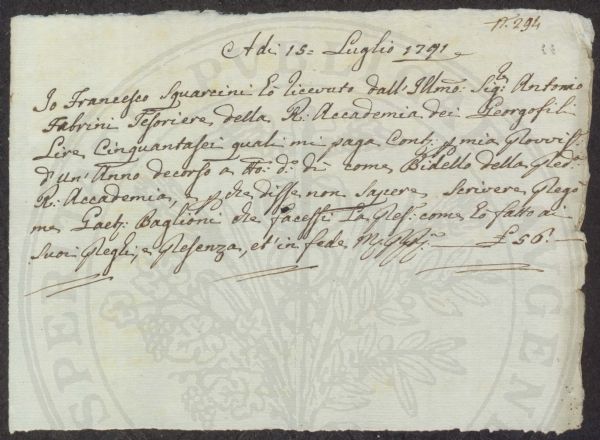 N. 294
Adi 15= Luglio 1791
Io Francesco Squarcini ho ricevuto dall'Illmo: Sigr: Antonio
Fabrini Tesoriere della R: Accademia dei Georgofili
Lire Cinquantasei quali mi paga Cont: p mia Provvis:
d'un'Anno decorso a tto: do: dì come Bidello della Preda:
R: Accademia, e p che disse non Sapere Scrivere Pregò
me Gaet: Baglioni che facessi La Pres: come ho fatto ai
Suoi Preghi, e Presenza, et in fede M: Ppa: £ 56.
PUBBL
PROSPER
AUGEN